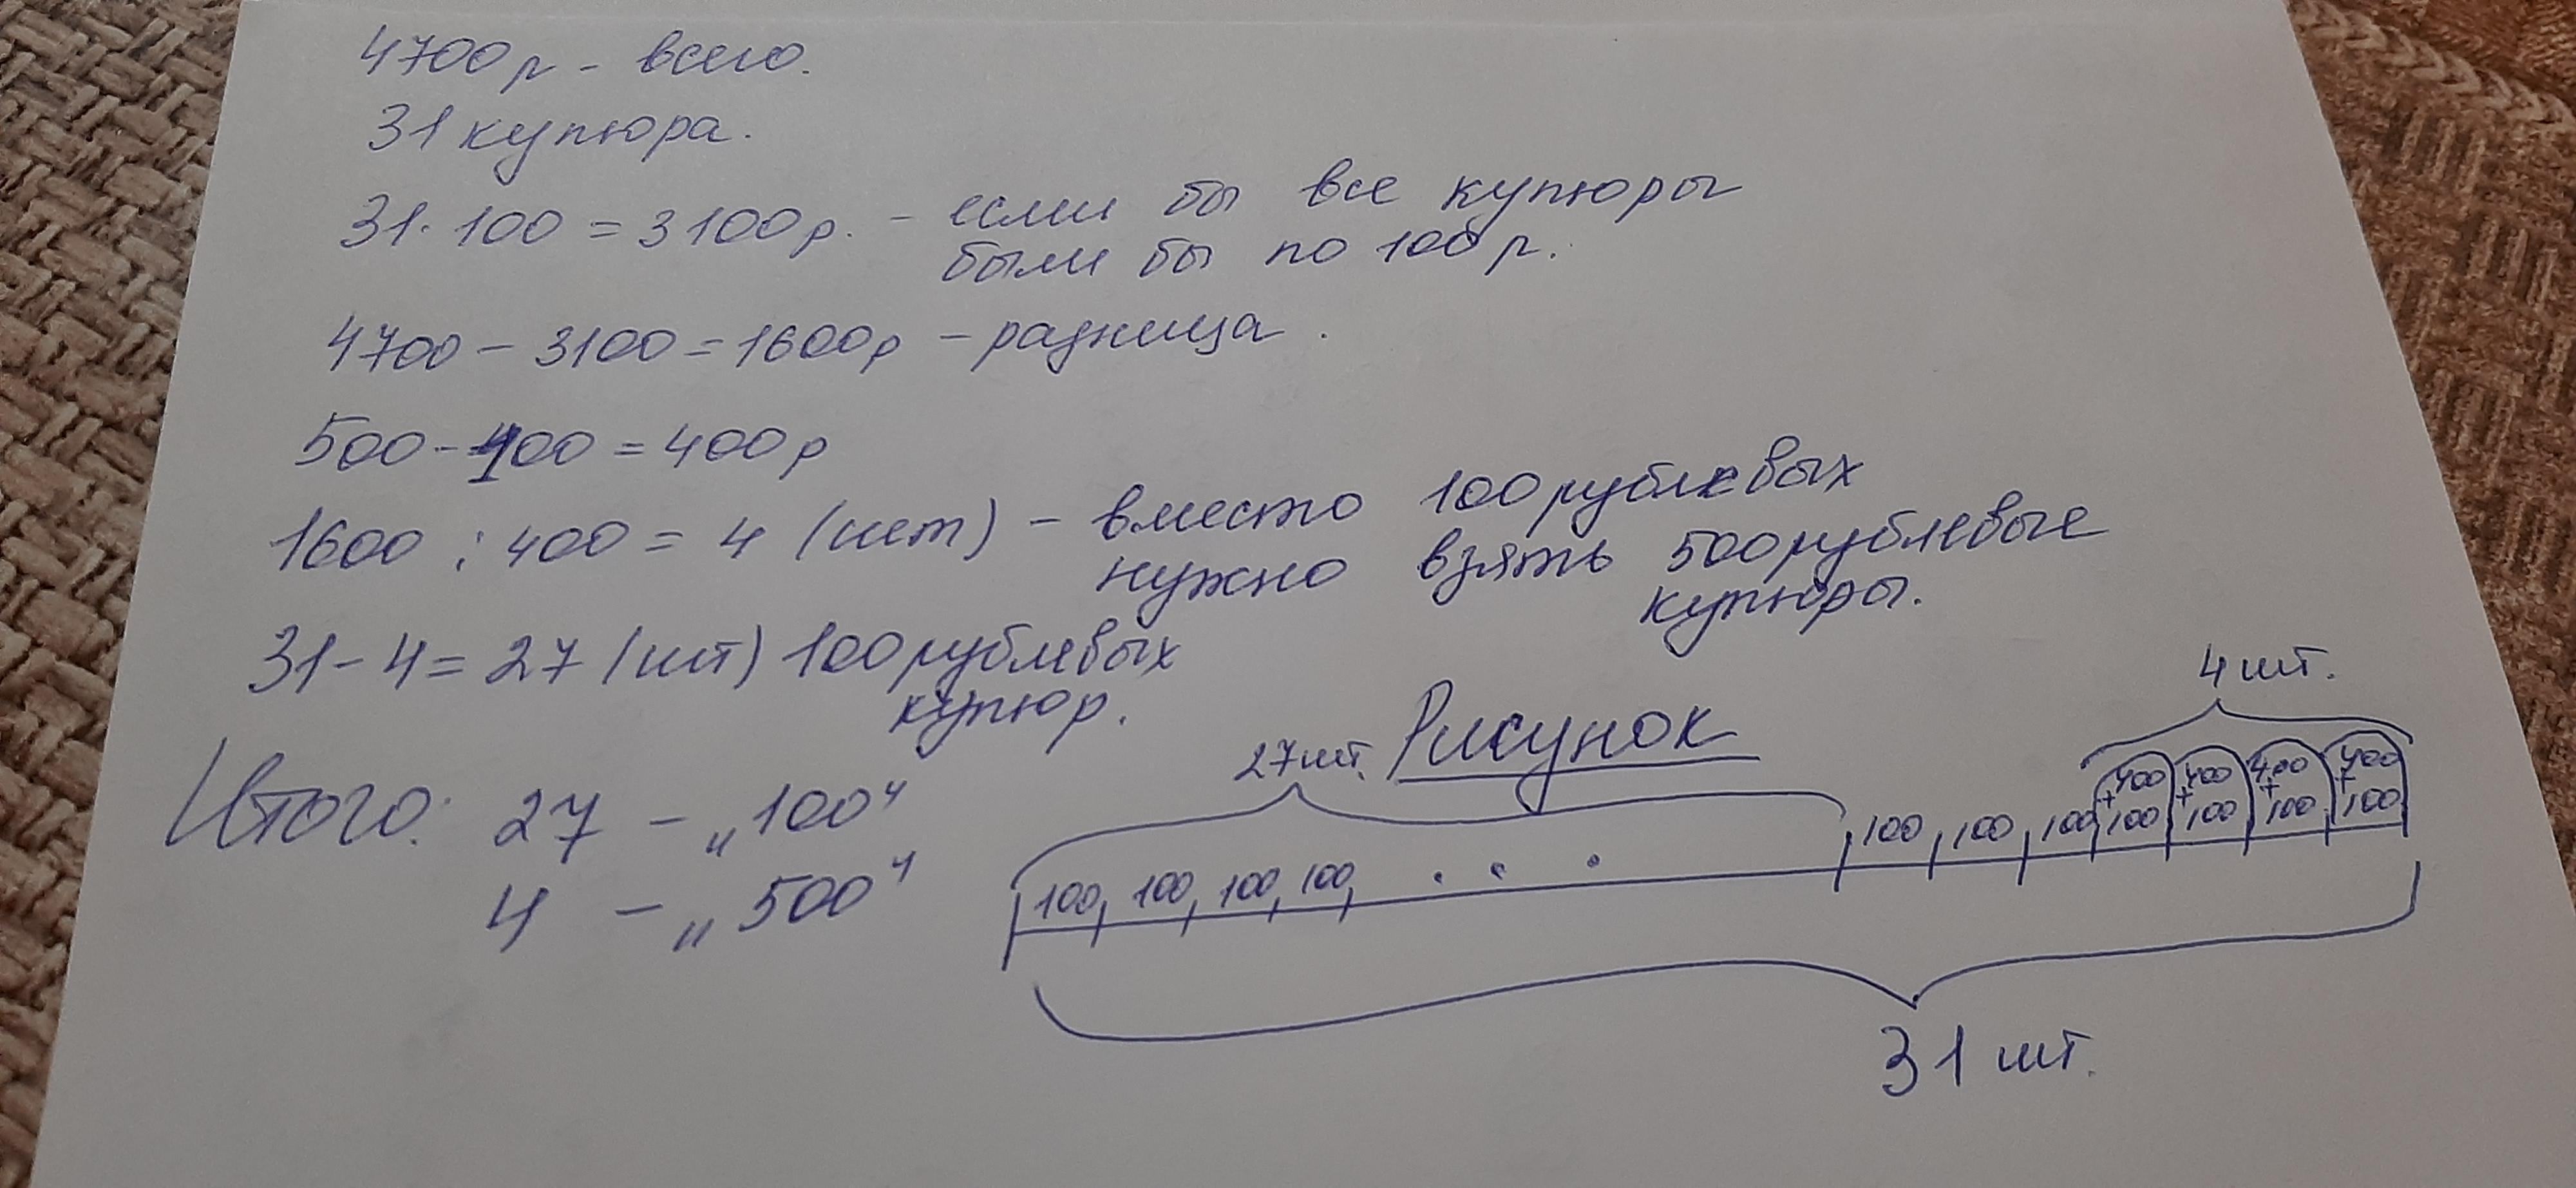 4700 р - всего.
31 купюра.
31 · 100 = 3100 р. - если бы все купюры
были бы по 100 р.
4700 - 3100 = 1600 р - разница.
500 - 100 = 400 р
1600 : 400 = 4 (шт) - вместо 100 рублевых
нужно взять 500 рублевые
купюры.
31 - 4 = 27 (шт) 100 рублевых
купюр.
Итого: 27 - „100"
4 - „500"
Рисунок
27 шт.
4 шт.
400 400 400 400
+ + + +
100, 100, 100, 100, . . . 100, 100, 100 100 100 100 100
31 шт.